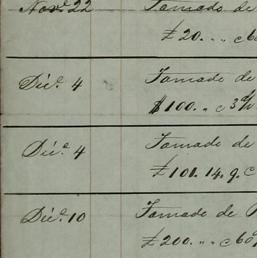 Nov.e 22 Tomado de
£ 20. „ c 60
Dic.e 4 Tomado de
$ 100. „ c 3 d/v
Dic.e 4 Tomado de
£ 101. 14. 9. c
Dic.e 10 Tomado de
£ 200. „ „ c 60